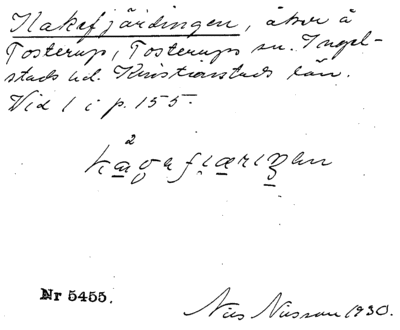 Hakefjärdingen, åker å
Tosterup, Tosterups sn. Ingel-
stads hd. Kristianstads län.
Vid 1 i p. 155.
Nr 5455.
Nils Nilsson 1930.